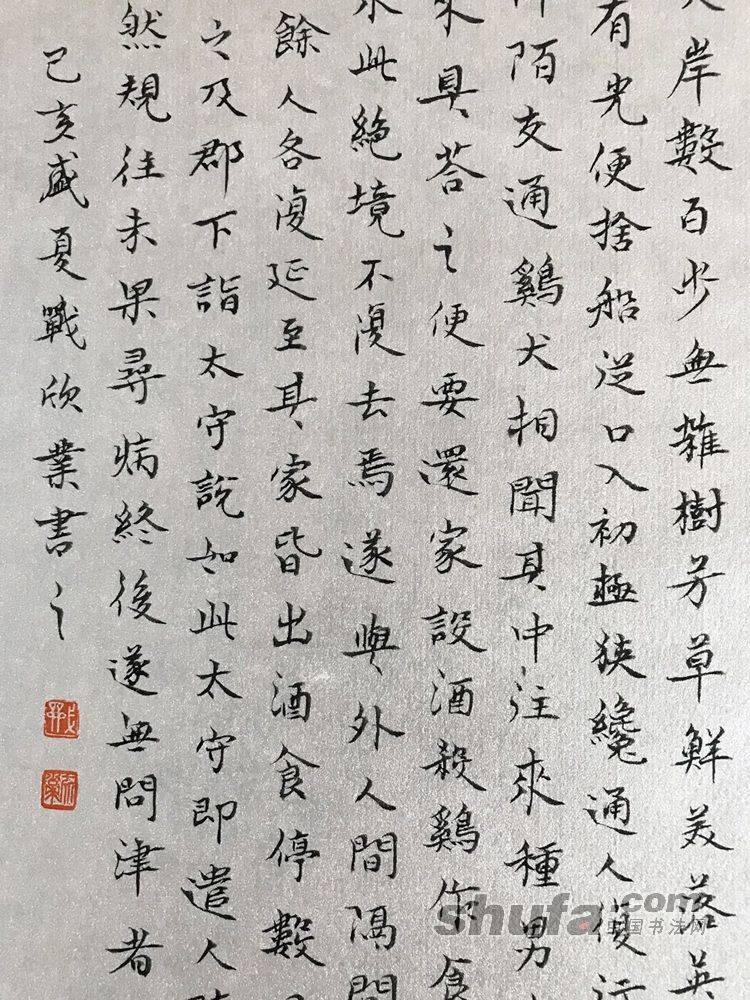 夾岸數百步無雜樹芳草鮮美落英
有光便捨船從口入初極狹纔通人復行
阡陌交通鷄犬相聞其中往來種男
來具荅之便要還家設酒殺鷄作食
來此絕境不復去焉遂與外人間隔問
餘人各復延至其家皆出酒食停數日
之及郡下詣太守說如此太守即遣人隨
然規往未果尋病終後遂無問津者
己亥盛夏戰欣業書之
戰
欣業
shufa.com
中国书法网